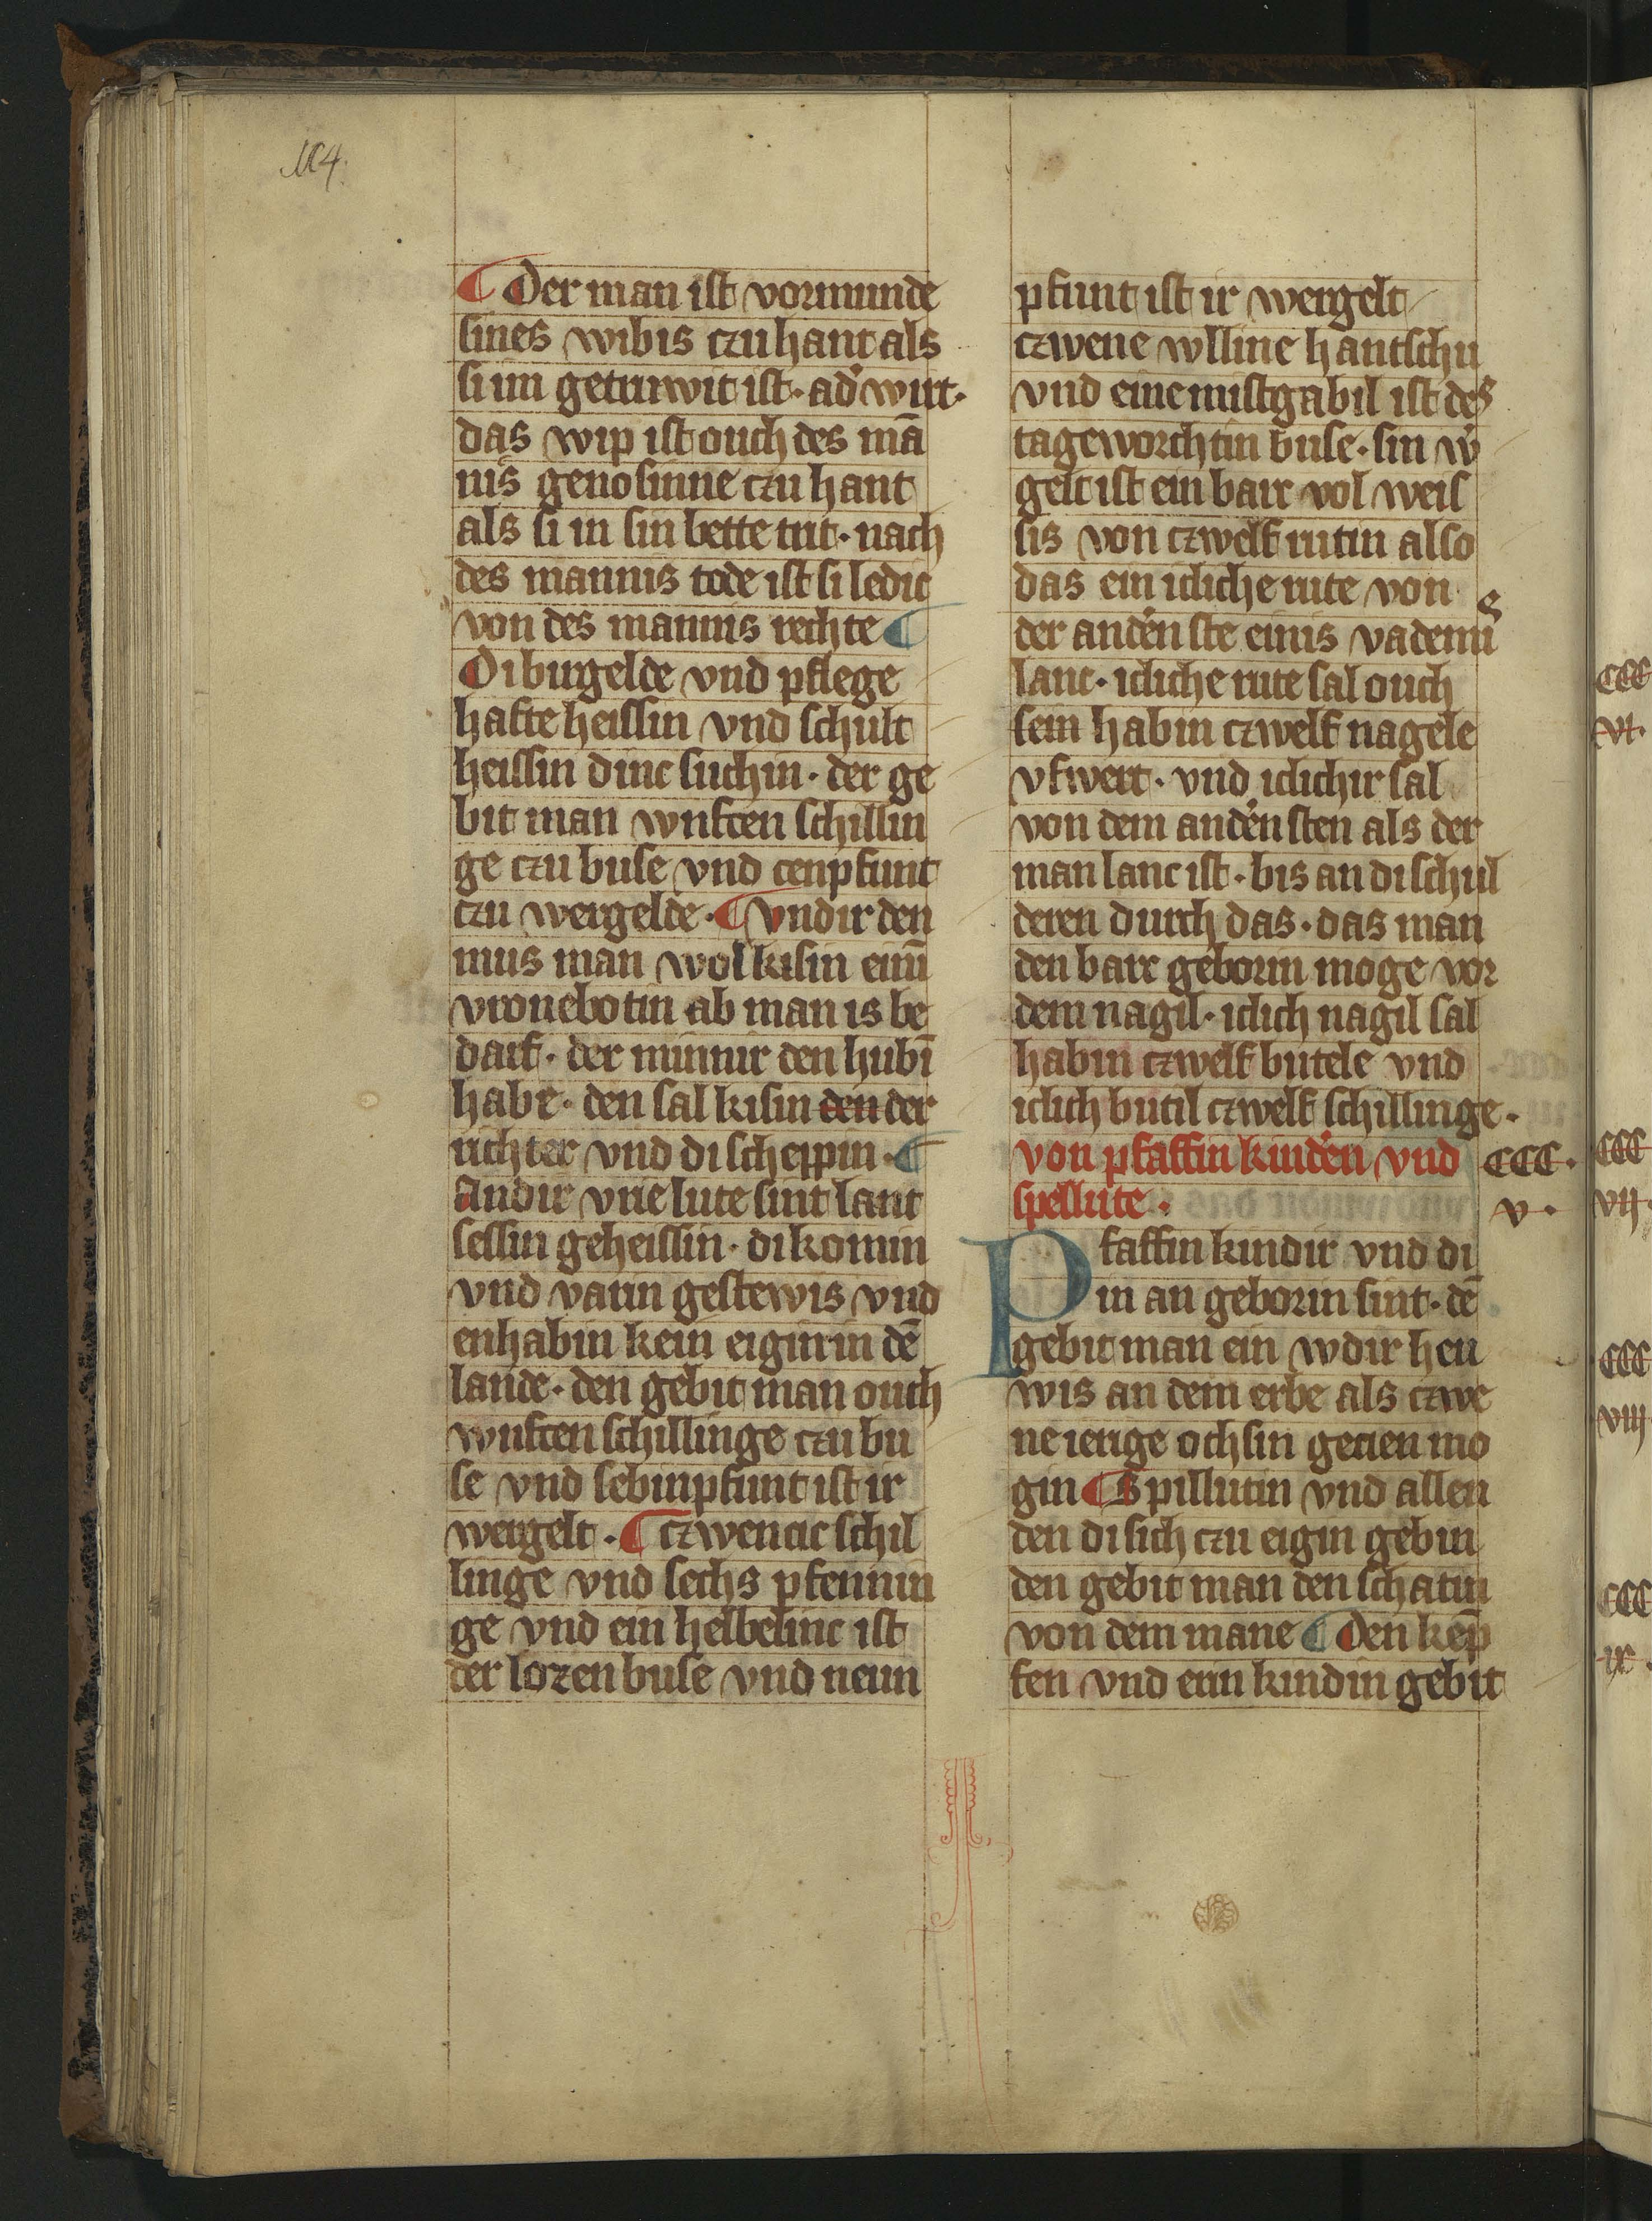 104.
¶ Der man ist vormunde
sines wibis czu hant als
si im getruwit ist· ad' wirt·
das wip ist ouch des mā
nis genosinne czu hant
als si in sin bette trit· nach
des mannis tode ist si ledic
von des mannis rechte ¶
Di birgelde vnd pflege
hafte heissin vnd schult
heissin dinc suchin· der ge
bit man wnfcen schillin
ge czu buse vnd cen pfunt
czu wergelde· ¶ vndir den
mus man wol kisin einū
vronebotin ab man is be
darf· der minnir den hubī
habe· den sal kisin den der
richter vnd di scheppin· ¶
Andir vrie lute sint lant
sessin geheissin· di komin
vnd varin gestewis vnd
enhabin kein eigin in dē
lande· den gebit man ouch
wnfcen schillinge czu bu
se vnd sebinpfunt ist ir
wergelt· ¶ czwencic schil
linge vnd sechs pfennin
ge vnd ein helbelinc ist
der lozen buse vnd neun
pfunt ist ir wergelt
czwene wlline hantschu
vnd eine mistgabil ist des
tageworchtin buse· sin w'
gelt ist ein barc vol weis
sis von czwelf rutin also
das ein icliche rute von
der anděn ste einis vademis
lanc· icliche rute sal ouch
sein habin czwelf nagele
vfwert· vnd iclichir sal
von dem anděn sten als der
man lanc ist· bis an di schul
deren durch das· das man
den barc geborin moge vor
dem nagil· iclich nagil sal
habin czwelf butele vnd
iclich butil czwelf schillinge·
von pfaffin kinděn vnd
spellute·
CCC·
v·
Pfaffin kindir vnd di
in an geborin sint· dē
gebit man ein wdir heu
wis an dem erbe als czwe
ne ierige ochsin gecien mo
gin ¶ Spillutin vnd allen
den di sich czu eigin gebin
den gebit man den schatin
von dem mane ¶ Den kēp
fen vnd erin kindin gebit
CCC
vi·
CCC
vii·
CCC
viii
CCC
ix·